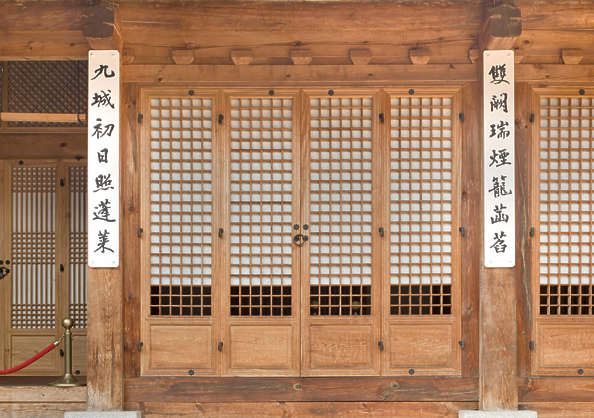 雙闕瑞煙籠菡萏
九城初日照蓬萊